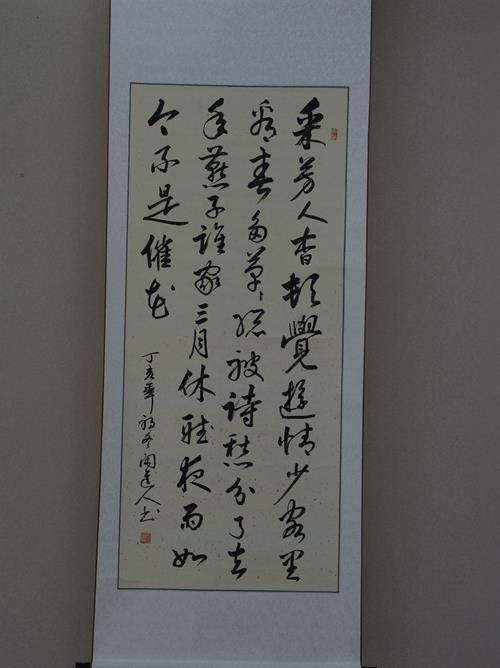 采芳人杳頓覺遊情少客里
看春多草〻總被詩愁分了去
年燕子誰家三月休聽夜雨如
今不是催花
丁亥年初冬 人书